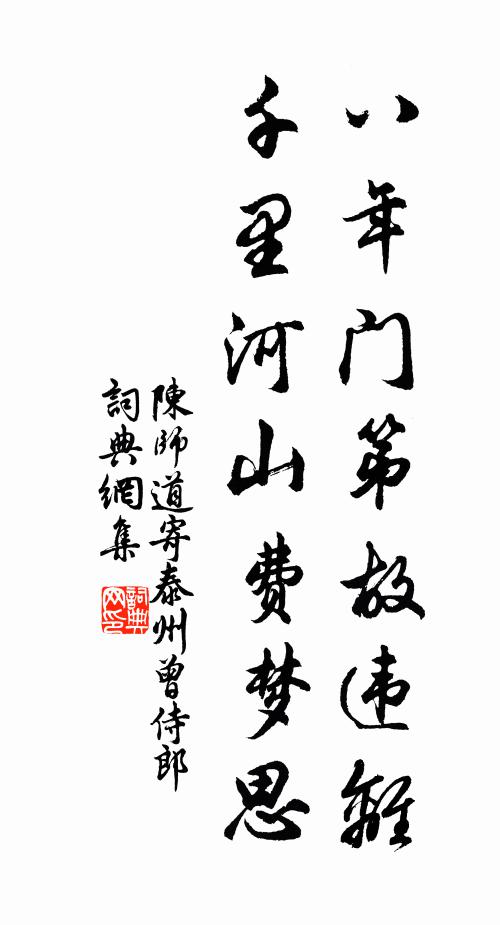 八年门第故违离
千里河山费梦思
陳師道寄泰州曾侍郎
詞典網集
詞典
网印